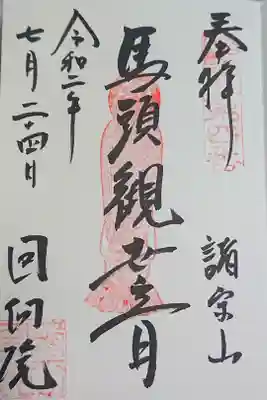 奉拝
諸宗山
馬頭観世音
令和二年
七月二十四日
回向院